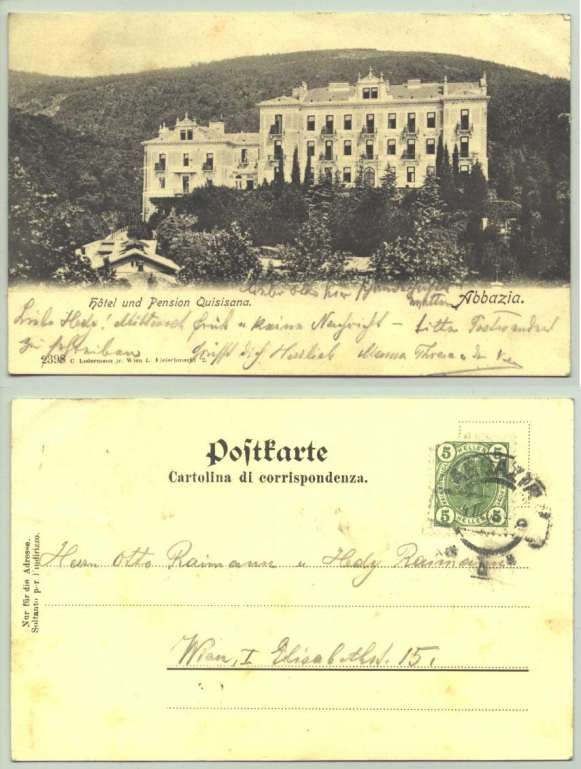 Hôtel und Pension Quisisana.
Abbazia.
Liebe Hedy! Mittwoch früh u keine Nachricht – bitte
zu schreiben Grüßt dich Herzlich Mama
2398 C. Ledermann jr. Wien I.
Postkarte
Cartolina di corrispondenza.
5 HELLER 5
5 HELLER 5
ABBAZIA
Nur für die Adresse.
Soltanto per l'indirizzo.
Herrn Otto Raimann u Hedy Raimann
Wien, I Elisabethstr. 15.